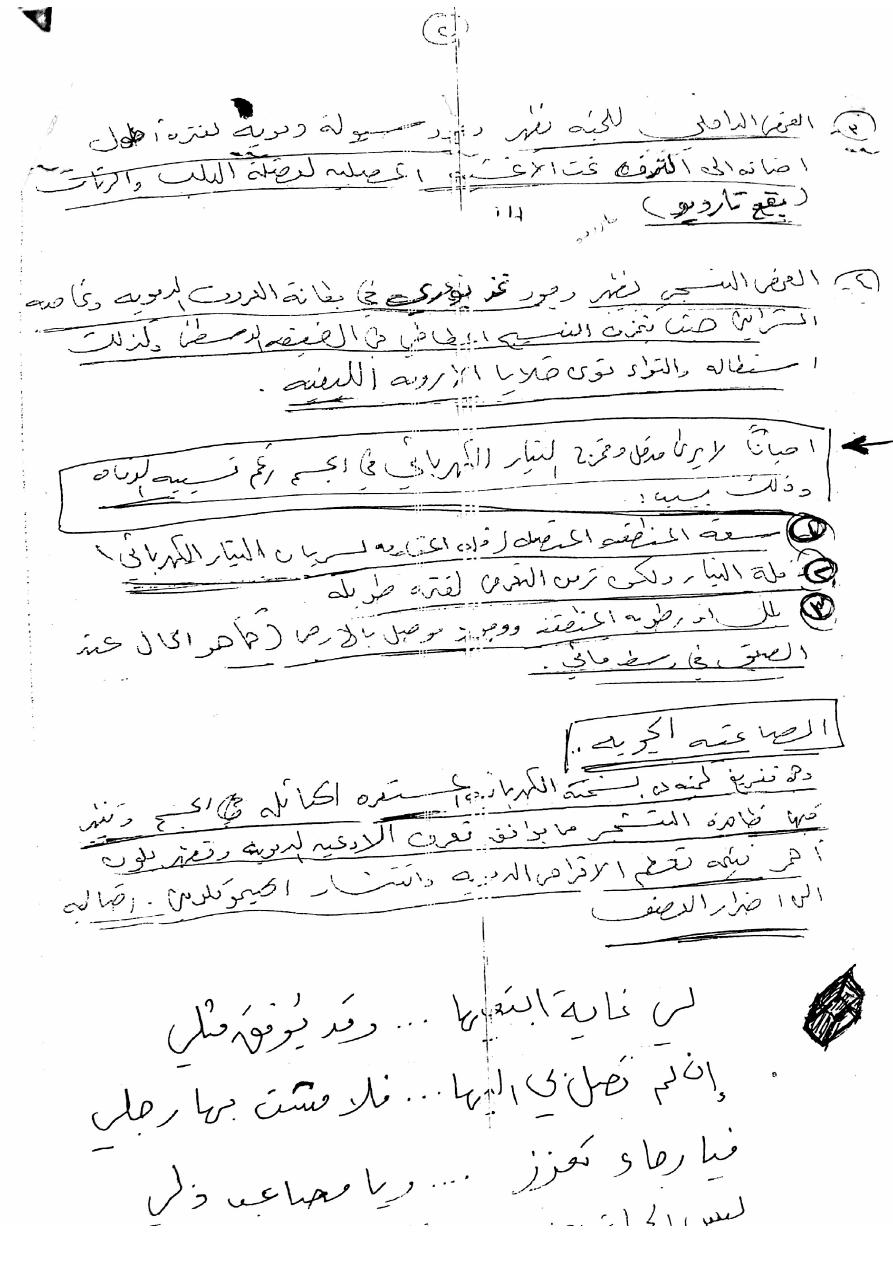 (٢)
٣- الفحص الداخلي للجثة تظهر وجود سيولة دموية لفترة أطول
اضافة الى النزف تحت الأغشية المصلية لعضلة القلب والرئات
(بقع تارديو)
٤- الفحص النسجي تظهر وجود في بطانة العروق الدموية وخاصة
الشرايين النسيج في الطبقة الوسطى وكذلك
استطالة والتواء نوى خلايا الأروبة الليفية .
احياناً لا يرى مدخل ومخرج التيار الكهربائي في الجسم رغم تسببه الوفاة
وذلك بسبب :
١ سعة المنطقة المتصلة لسريان التيار الكهربائي)
٢ قلة التيار ولكن زمن التعرض لفترة طويلة
٣ بلل او رطوبة المنطقة ووجود موصل بالارض (كما هو الحال عند
الصعق في وسط مائي .
الصاعقة الجوية ..
وهي تفريغ لشحنة الكهربائية المستقرة الهائلة في الجسم وتظهر
فيها ظاهرة التشجر ما يوافق تفرع الاوعية الدموية وتظهر بلون
أحمر نتيجة تحطم الاقراص الدموية وانتشار الهيموكلوبين . اضافة
الى اضرار العصف
لي غاية ابتغيها ... وقد يُوفق مثلي
إن لم تصل بي اليها ... فلا مشت بها رجلي
فيا رجاء تعزز .... ويا مصاعب ذلي
ليس